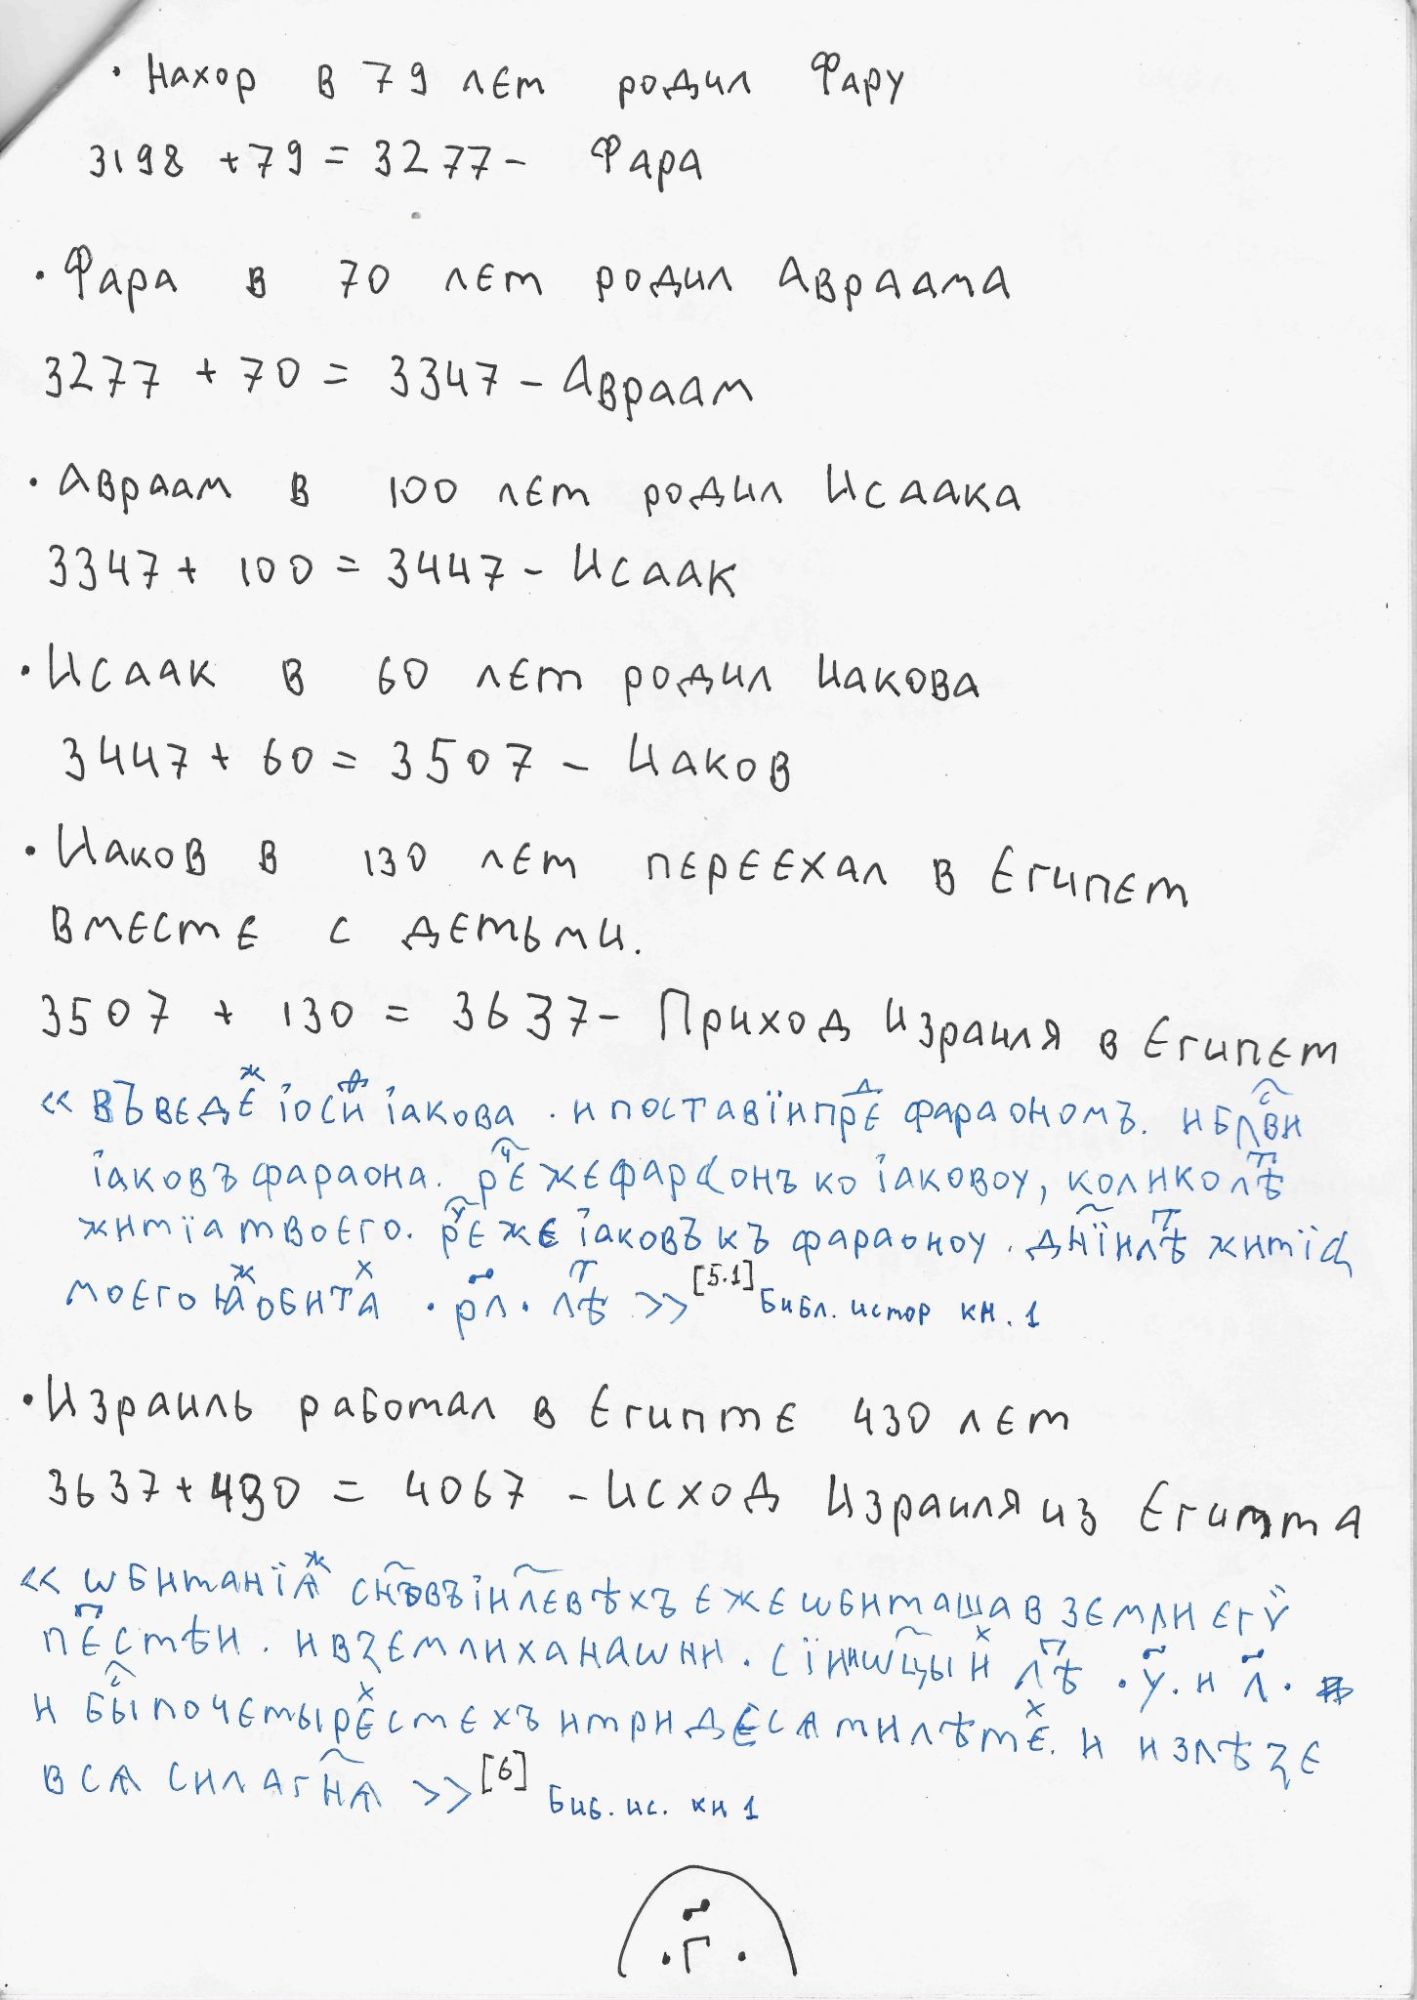 · Нахор в 79 лет родил Фару
3198 +79 = 3277 - Фара
· Фара в 70 лет родил Авраама
3277 + 70 = 3347 - Авраам
· Авраам в 100 лет родил Исаака
3347 + 100 = 3447 - Исаак
· Исаак в 60 лет родил Иакова
3447 + 60 = 3507 - Иаков
· Иаков в 130 лет переехал в Египет
вместе с детьми.
3507 + 130 = 3637 - Приход Израиля в Египет
« въведеⷤ іосиⷴ іакова . и поставїипреⷣ фараономъ. и блⷭ҇ви
іаковъ фараона. реⷱ҇ жефараонъ ко іаковоу, колико лѣⷮ
житїа твоего. реⷱ҇ же іаковъ къ фараоноу . дн҃їилѣⷮ житїа
моего ꙗⷤобитаⷯ . р҃л . лѣⷮ » [5.1] Библ. истор кн. 1
· Израиль работал в Египте 430 лет
3637 + 430 = 4067 - Исход Израиля из Египта
« ѡбитанїѧⷤ сн҃ѡвъ іил҃евѣхъ ежеѡбиташа в земли егѵ
пеⷮстѣи . ивꙁемлиханаѡни . сїи ѡц҃ыиⷯ лѣⷮ . у҃ . и л҃ .
и быⷭ҇ почетыреⷯстехъ итридесѧтилѣтеⷯ. и излѣꙁе
всѧ силагн҃ѧ » [6] Биб. ис. кн 1
. г҃ .